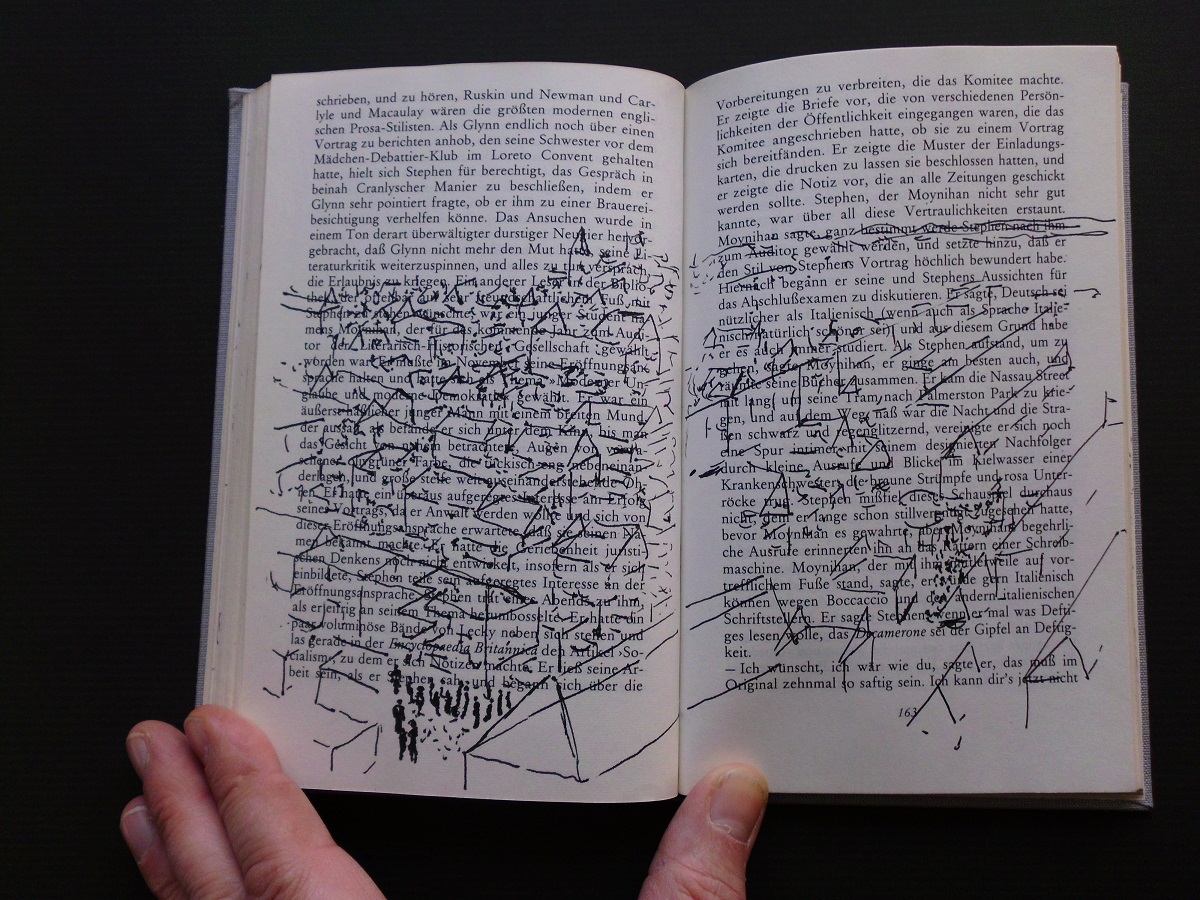 schrieben, und zu hören, Ruskin und Newman und Car-
lyle und Macaulay wären die größten modernen engli-
schen Prosa-Stilisten. Als Glynn endlich noch über einen
Vortrag zu berichten anhob, den seine Schwester vor dem
Mädchen-Debattier-Klub im Loreto Convent gehalten
hatte, hielt sich Stephen für berechtigt, das Gespräch in
beinah Cranlyscher Manier zu beschließen, indem er
Glynn sehr pointiert fragte, ob er ihm zu einer Brauerei-
besichtigung verhelfen könne. Das Ansuchen wurde in
einem Ton derart überwältigter durstiger Neugier hervor-
gebracht, daß Glynn nicht mehr den Mut hatte, seine Li-
teraturkritik weiterzuspinnen, und alles zu tun versprach,
die Erlaubnis zu kriegen. Ein anderer Leser in der Biblio-
thek, der offenbar auf sehr freundschaftlichem Fuß mit
Stephen zu stehen wünschte, war ein junger Student na-
mens Moynihan, der für das kommende Jahr zum Audi-
tor der Literarisch-Historischen Gesellschaft gewählt
worden war. Er mußte im November seine Eröffnungsan-
sprache halten und hatte sich als Thema ›Moderner Un-
glaube und moderne Demokratie‹ gewählt. Er war ein
äußerst häßlicher junger Mann mit einem breiten Mund,
der aussah, als befände er sich unter dem Kinn, bis man
das Gesicht von nahem betrachtete, Augen von
olivgrüner Farbe, die tückisch eng nebeneinan-
derlagen, und große steife weit auseinanderstehende Oh-
ren. Er hatte ein überaus aufgeregtes Interesse am Erfolg
seines Vortrags, da er Anwalt werden wollte und sich von
dieser Eröffnungsansprache erwartete, daß sie seinen Na-
men bekannt machte. Er hatte die Geriebenheit justi-
schen Denkens noch nicht entwickelt, insofern als er sich
einbildete, Stephen teile sein aufgeregtes Interesse an der
Eröffnungsansprache. Stephen traf eines Abends zu ihm,
als er eifrig an seinem Thema herumbosselte. Er hatte ein
paar voluminöse Bände von Lecky neben sich stehen und
las gerade in der Encyclopaedia Britannica den Artikel ›So-
cialism‹, zu dem er sich Notizen machte. Er ließ seine Ar-
beit sein, als er Stephen sah, und begann sich über die
Vorbereitungen zu verbreiten, die das Komitee machte.
Er zeigte die Briefe vor, die von verschiedenen Persön-
lichkeiten der Öffentlichkeit eingegangen waren, die das
Komitee angeschrieben hatte, ob sie zu einem Vortrag
sich bereitfänden. Er zeigte die Muster der Einladungs-
karten, die drucken zu lassen sie beschlossen hatten, und
er zeigte die Notiz vor, die an alle Zeitungen geschickt
werden sollte. Stephen, der Moynihan nicht sehr gut
kannte, war über all diese Vertraulichkeiten erstaunt.
Moynihan sagte, ganz bestimmt werde Stephen nach ihm
zum Auditor gewählt werden, und setzte hinzu, daß er
den Stil von Stephens Vortrag höchlich bewundert habe.
Hiernach begann er seine und Stephens Aussichten für
das Abschlußexamen zu diskutieren. Er sagte, Deutsch sei
nützlicher als Italienisch (wenn auch als Sprache Italie-
nisch natürlich schöner sei) und aus diesem Grund habe
er es auch immer studiert. Als Stephen aufstand, um zu
gehen, sagte Moynihan, er ginge am besten auch, und
räumte seine Bücher zusammen. Er kam die Nassau Street
mit lang, um seine Tram nach Palmerston Park zu krie-
gen, und auf dem Weg, naß war die Nacht und die Stra-
ßen schwarz und regenglitzernd, vereinigte er sich noch
eine Spur intimer mit seinem designierten Nachfolger
durch kleine Ausrufe und Blicke im Kielwasser einer
Krankenschwester, die braune Strümpfe und rosa Unter-
röcke trug. Stephen mißfiel dieses Schauspiel durchaus
nicht, dem er lange schon stillvergnügt zugesehen hatte,
bevor Moynihan es gewahrte, aber Moynihans begehrli-
che Ausrufe erinnerten ihn an das Rattern einer Schreib-
maschine. Moynihan, der mit ihm mittlerweile auf vor-
trefflichem Fuße stand, sagte, er würde gern Italienisch
können wegen Boccaccio und der andern italienischen
Schriftsteller. Er sagte Stephen, wenn er mal was Defti-
ges lesen wolle, das Decamerone sei der Gipfel an Deftig-
keit.
– Ich wünscht, ich wär wie du, sagte er, das muß im
Original zehnmal so saftig sein. Ich kann dir's jetzt nicht
163